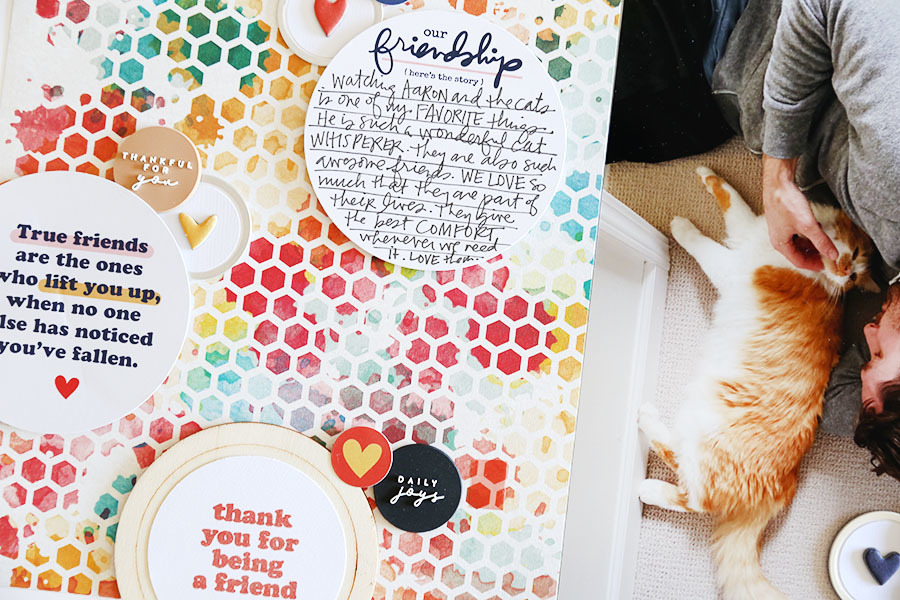 our
friendship
(here's the story)
Watching AARON and the cats
is one of my FAVORITE things.
He is such a wonderful cat
WHISPERER. They are also such
awesome friends. WE LOVE so
much that they are part of
their lives. They give
the best COMFORT
whenever we need
it. LOVE them.
THANKFUL
FOR
you
True friends
are the ones
who lift you up,
when no one
lse has noticed
you've fallen.
DAILY
joys
thank
you for
being
a friend